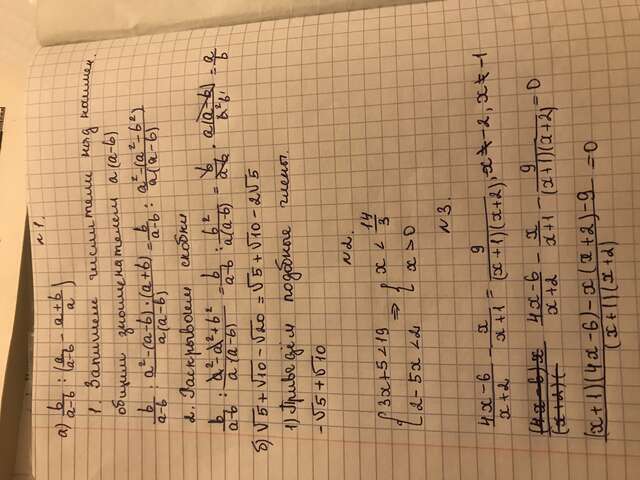 №1.
а) b/(a-b) : (a/(a-b) - (a+b)/a)
1. Запишем числители над наимен.
общим знаменателем a(a-b)
b/(a-b) : (a²-(a-b)·(a+b))/(a(a-b)) = b/(a-b) : (a²-(a²-b²))/(a(a-b))
2. Раскрываем скобки
b/(a-b) : (a²-a²+b²)/(a(a-b)) = b/(a-b) : b²/(a(a-b)) = b/(a-b) · a(a-b)/b² = a/b
б) √5+√10-√20 = √5+√10-2√5
1) Приведём подобные члены.
-√5+√10
№2.
{3x+5<19 ⇒ {x < 14/3
{2-5x<2 {x>0
№3.
(4x-6)/(x+2) - x/(x+1) = 9/((x+1)(x+2)), x≠-2, x≠-1
(4x-6)x/(x+2)( (4x-6)/(x+2) - x/(x+1) - 9/((x+1)(x+2)) = 0
((x+1)(4x-6)-x(x+2)-9)/((x+1)(x+2)) = 0